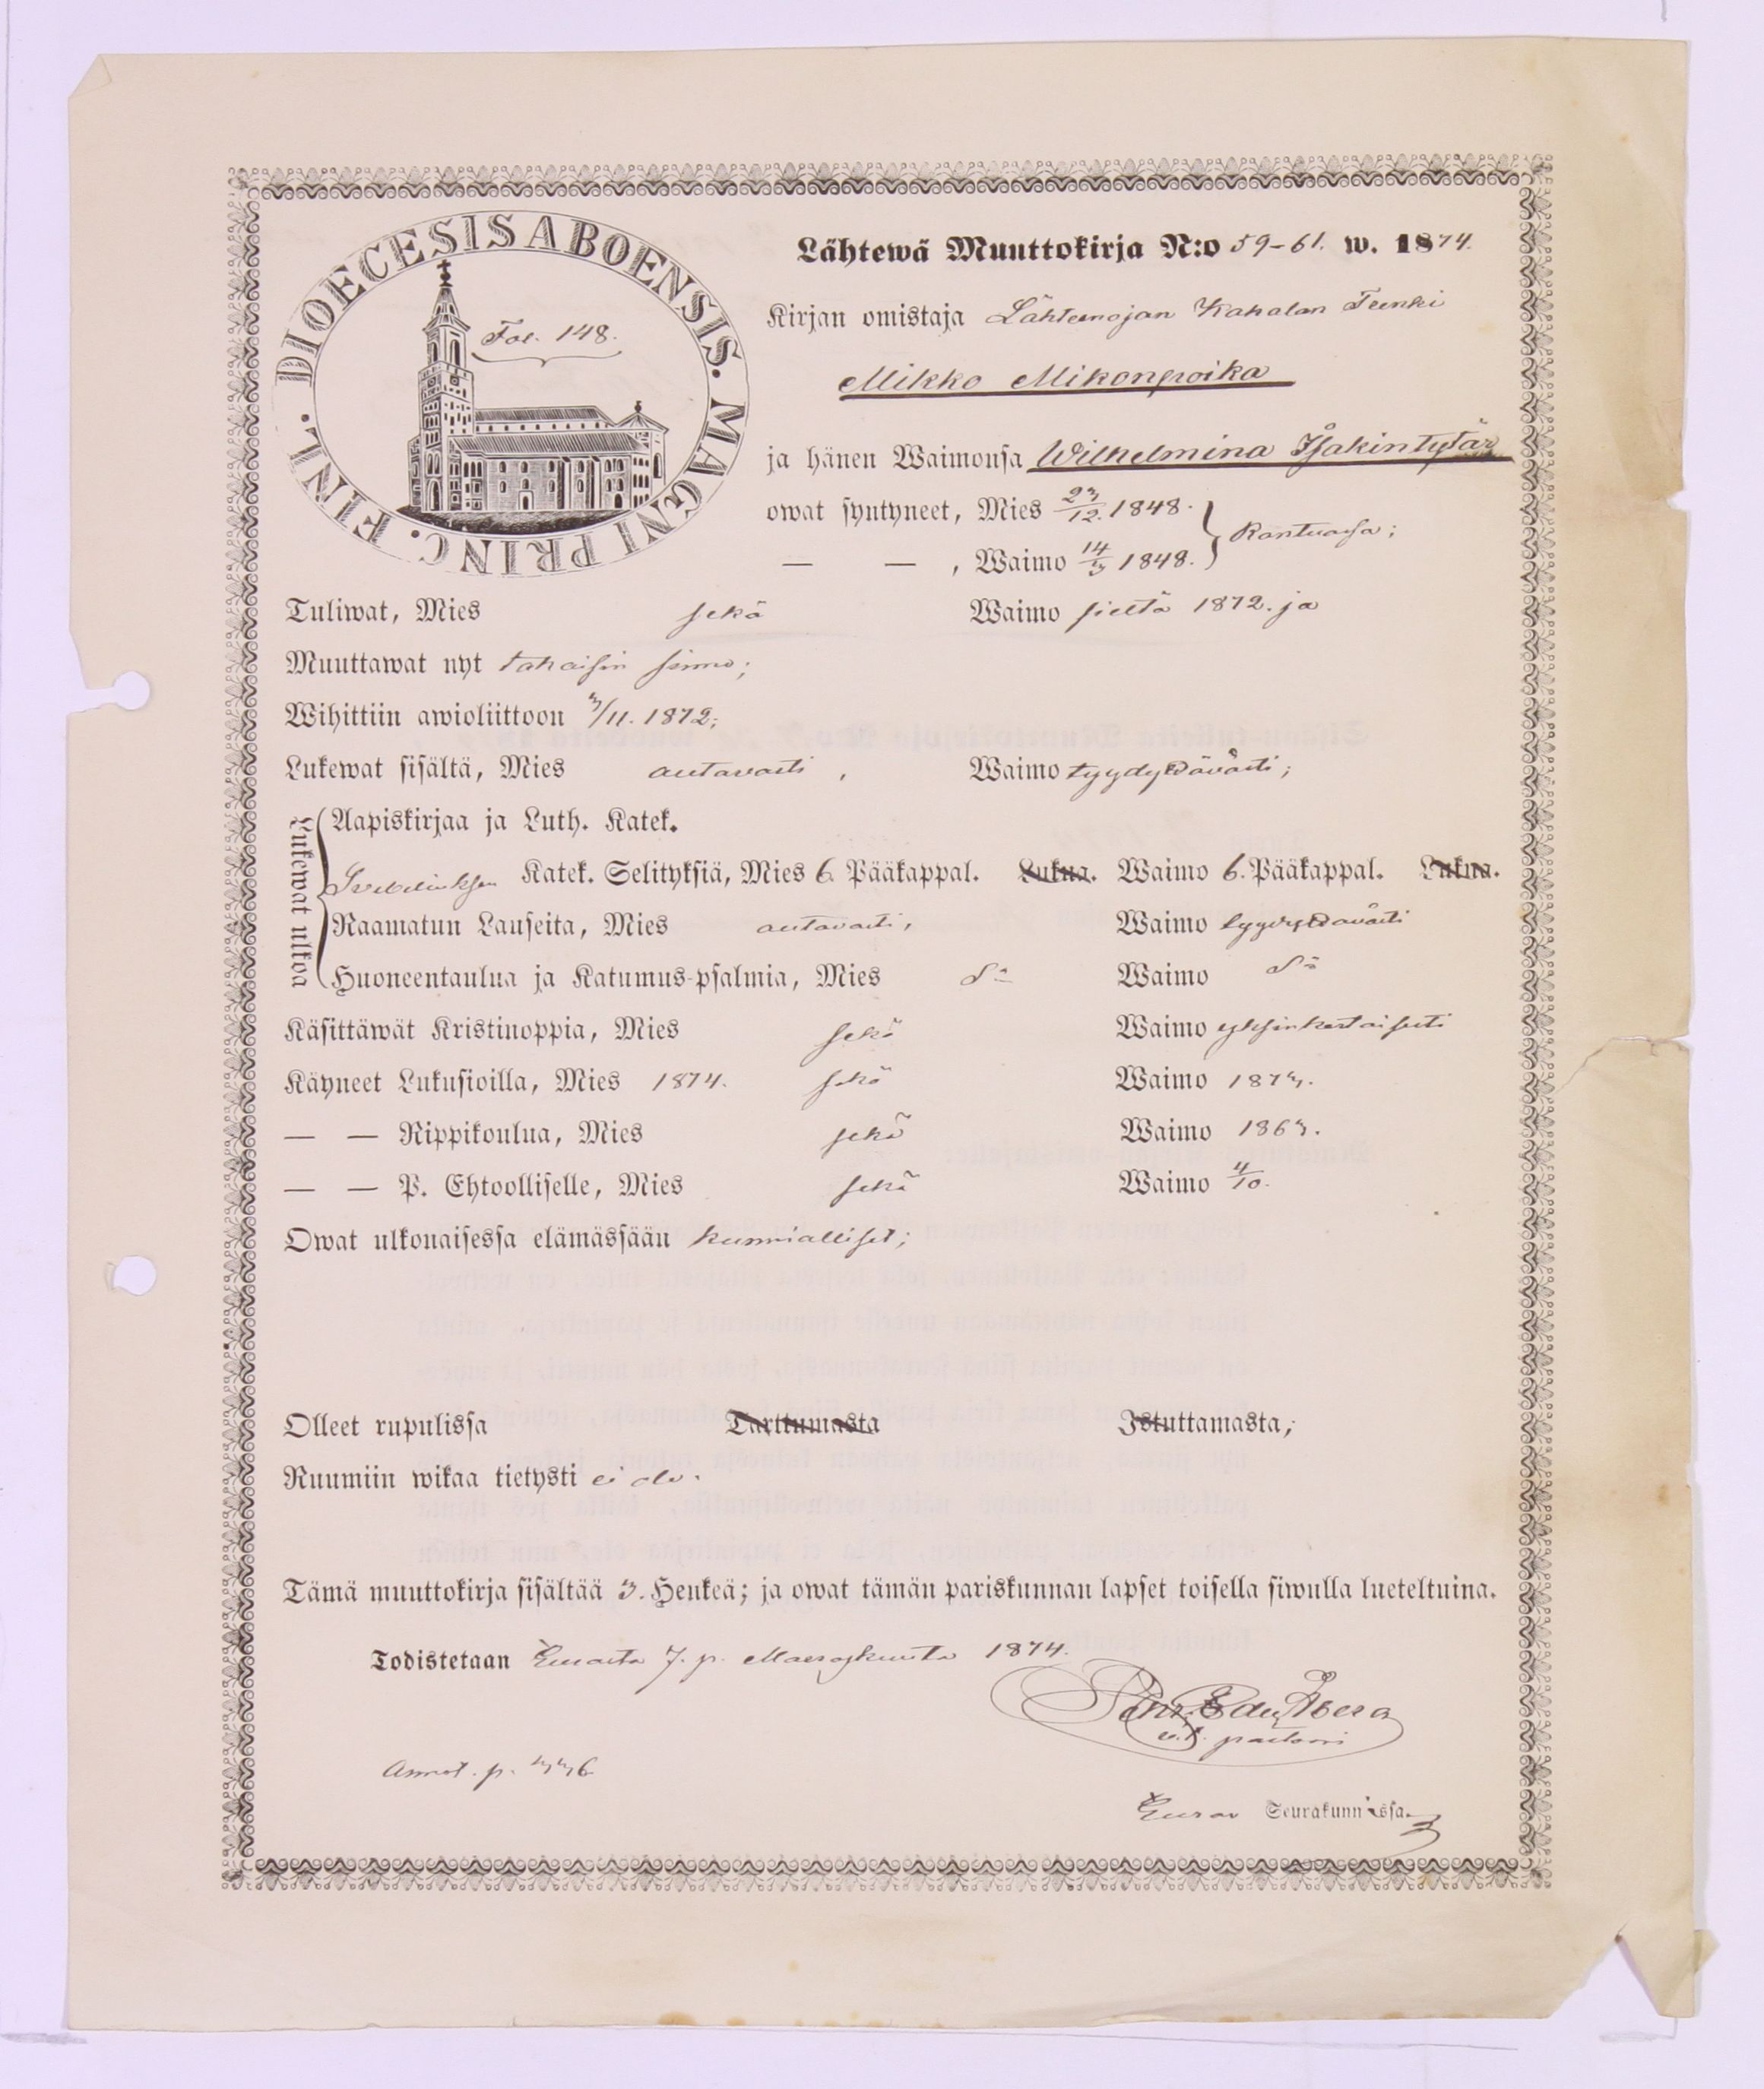 DIOECESIS ABOENSIS. MAGNI PRINC. FINL.
Fol. 148.
Lähtewä Muuttokirja N:o 59-61. w. 1874.
Kirjan omistaja Lähteenojan Kahalan Trenki
Mikko Mikonpoika
ja hänen Waimonsa Wilhelmina Isakintytär
owat syntyneet, Mies 23/12. 1848.
— — , Waimo 14/3 1848.
Tuliwat, Mies sekä Waimo sieltä 1872. ja
Muuttawat nyt takaisin sinne;
Wihittiin awioliittoon 3/11. 1872;
Lukewat sisältä, Mies auttavasti, Waimo tyydyttävästi;
Lukewat ulkoa
Aapiskirjaa ja Luth. Katek.
Svebeliuksen Katek. Selityksiä, Mies 6 Pääkappal. Lukua. Waimo 6. Pääkappal. Lukua.
Raamatun Lauseita, Mies auttavasti, Waimo tyydyttävästi
Huoneentaulua ja Katumus-psalmia, Mies d:o Waimo d:o
Käsittäwät Kristinoppia, Mies sekä Waimo yksinkertaisesti
Käyneet Lukusioilla, Mies 1874. sekä Waimo 1873.
— — Rippikoulua, Mies sekä Waimo 1863.
— — P. Ehtoolliselle, Mies sekä Waimo 4/10.
Owat ulkonaisessa elämässään kunnialliset;
Olleet rupulissa Tarttumasta Istuttamasta;
Ruumiin wikaa tietysti ei ole.
Tämä muuttokirja sisältää 3. Henkeä; ja owat tämän pariskunnan lapset toisella siwulla lueteltuina.
Todistetaan Eurasta 7. p. Marraskuuta 1874.
v.t. pastori
Annot. p. 336
Euran Seurakunnassa.